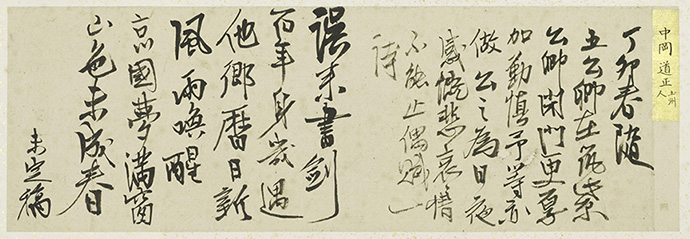 中岡 道正 土州人
丁卯春随
五公卿在筑紫
公卿閉門更厚
加勤慎予等亦
倣公之為日夜
感慨悲哀之情
不能止偶賦一
詩
誤来書剣
百年身幾遇
他郷暦日新
風雨喚醒
京國夢満窗
山色未成春
未定稿